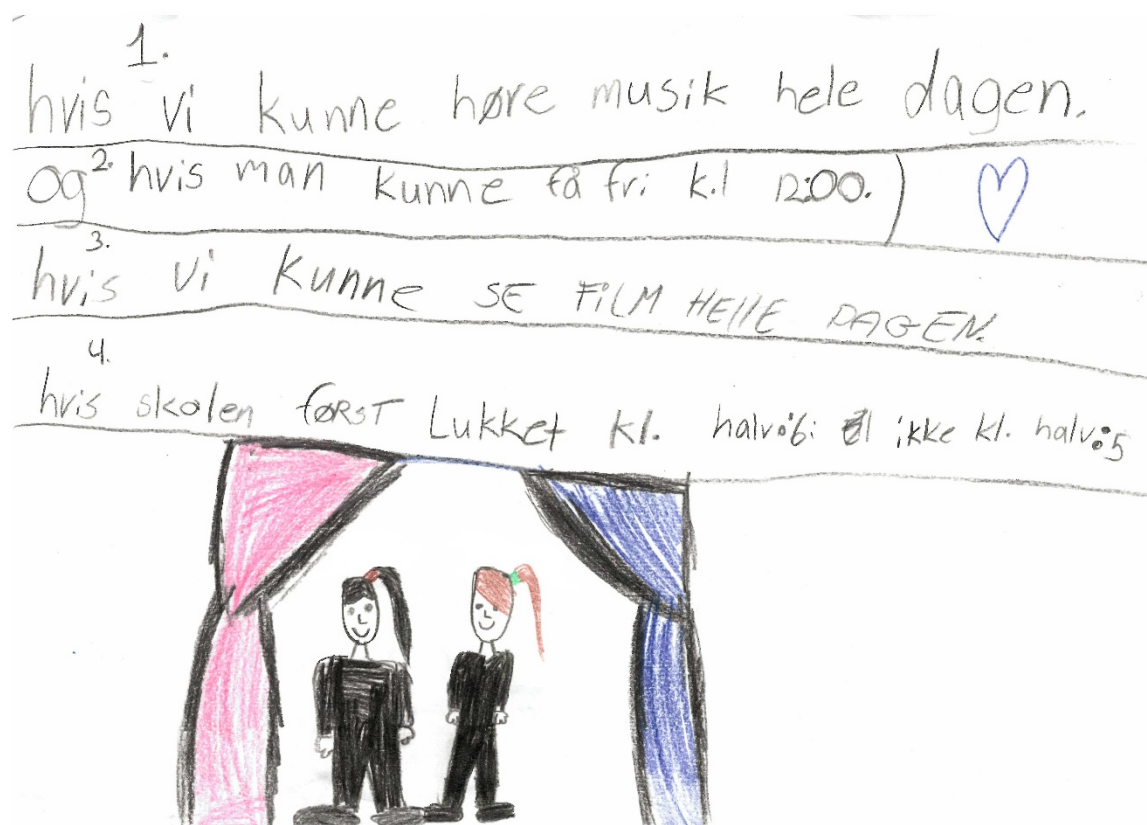 1.
hvis vi kunne høre musik hele dagen.
og 2. hvis man kunne få fri k.l 12:00.)
3.
hvis vi kunne SE FiLM HEllE DAGEN.
4.
hvis skolen føRST Lukket kl. halv:6: ikke kl. halv:5